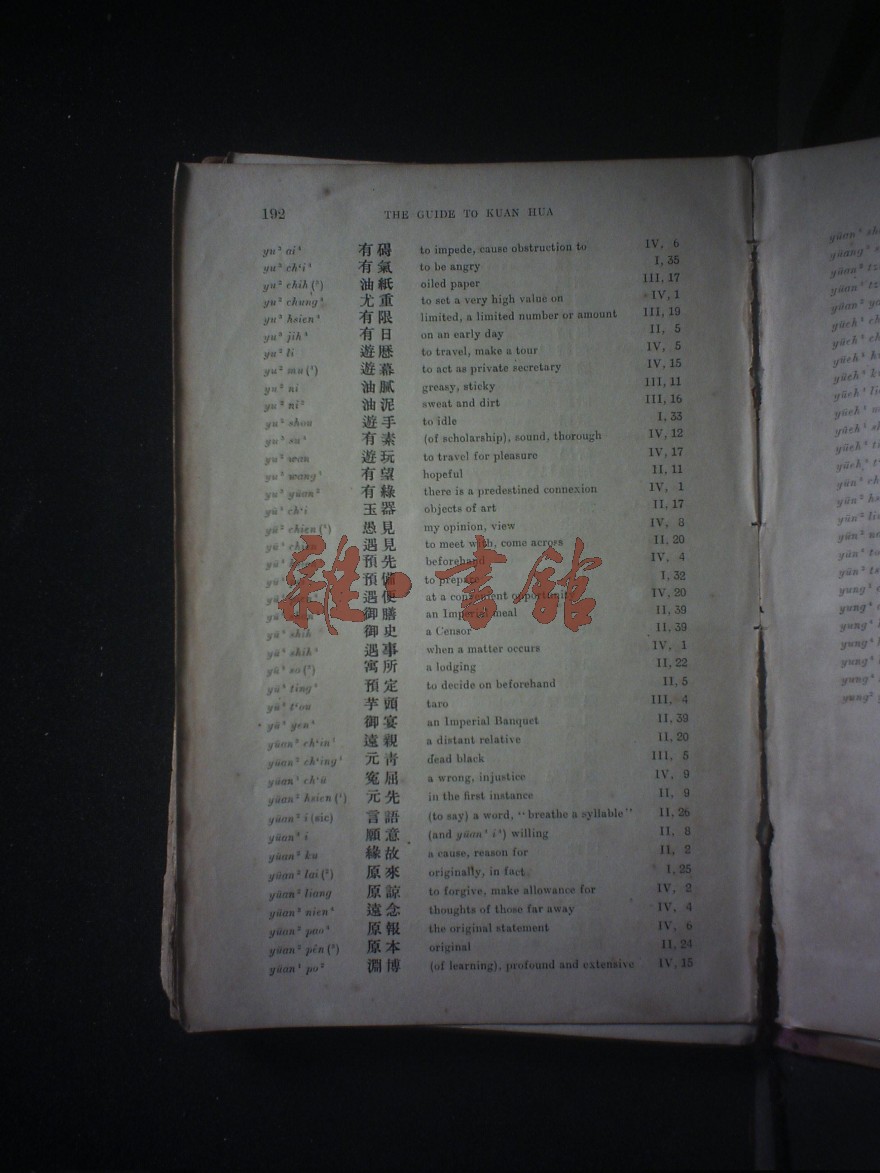 192 THE GUIDE TO KUAN HUA
yu³ ai⁴ 有碍 to impede, cause obstruction to IV, 6
yu³ ch‘i⁴ 有氣 to be angry I, 35
yu² chih (³) 油紙 oiled paper III, 17
yu² chung⁴ 尤重 to set a very high value on IV, 1
yu³ hsien⁴ 有限 limited, a limited number or amount III, 19
yu³ jih⁴ 有日 on an early day II, 5
yu² li 遊歷 to travel, make a tour IV, 5
yu² mu (⁴) 遊幕 to act as private secretary IV, 15
yu² ni 油膩 greasy, sticky III, 11
yu² ni² 油泥 sweat and dirt III, 16
yu² shou 遊手 to idle I, 33
yu³ su⁴ 有素 (of scholarship), sound, thorough IV, 12
yu² wan 遊玩 to travel for pleasure IV, 17
yu³ wang⁴ 有望 hopeful II, 11
yu³ yüan² 有緣 there is a predestined connexion IV, 1
yü⁴ ch‘i 玉器 objects of art II, 17
yü² chien (⁴) 愚見 my opinion, view IV, 8
yü⁴ chien 遇見 to meet with, come across II, 20
預先 beforehand IV, 4
預備 to prepare I, 32
遇便 at a convenient opportunity IV, 20
御膳 an Imperial meal II, 39
yü⁴ shih 御史 a Censor II, 39
yü⁴ shih⁴ 遇事 when a matter occurs IV, 1
yü⁴ so (³) 寓所 a lodging II, 22
yü⁴ ting⁴ 預定 to decide on beforehand II, 5
yü⁴ t‘ou 芋頭 taro III, 4
yü⁴ yen⁴ 御宴 an Imperial Banquet II, 39
yüan³ ch‘in¹ 遠親 a distant relative II, 20
yüan² ch‘ing¹ 元青 dead black III, 5
yüan¹ ch‘ü 冤屈 a wrong, injustice IV, 9
yüan² hsien (¹) 元先 in the first instance II, 9
yüan² i (sic) 言語 (to say) a word, “breathe a syllable” II, 26
yüan² i 願意 (and yüan⁴ i⁴) willing II, 8
yüan² ku 緣故 a cause, reason for II, 2
yüan² lai (²) 原來 originally, in fact I, 25
yüan² liang 原諒 to forgive, make allowance for IV, 2
yüan³ nien⁴ 遠念 thoughts of those far away IV, 4
yüan² pao⁴ 原報 the original statement IV, 6
yüan² pên (³) 原本 original II, 24
yüan¹ po² 淵博 (of learning), profound and extensive IV, 15
雜·書館